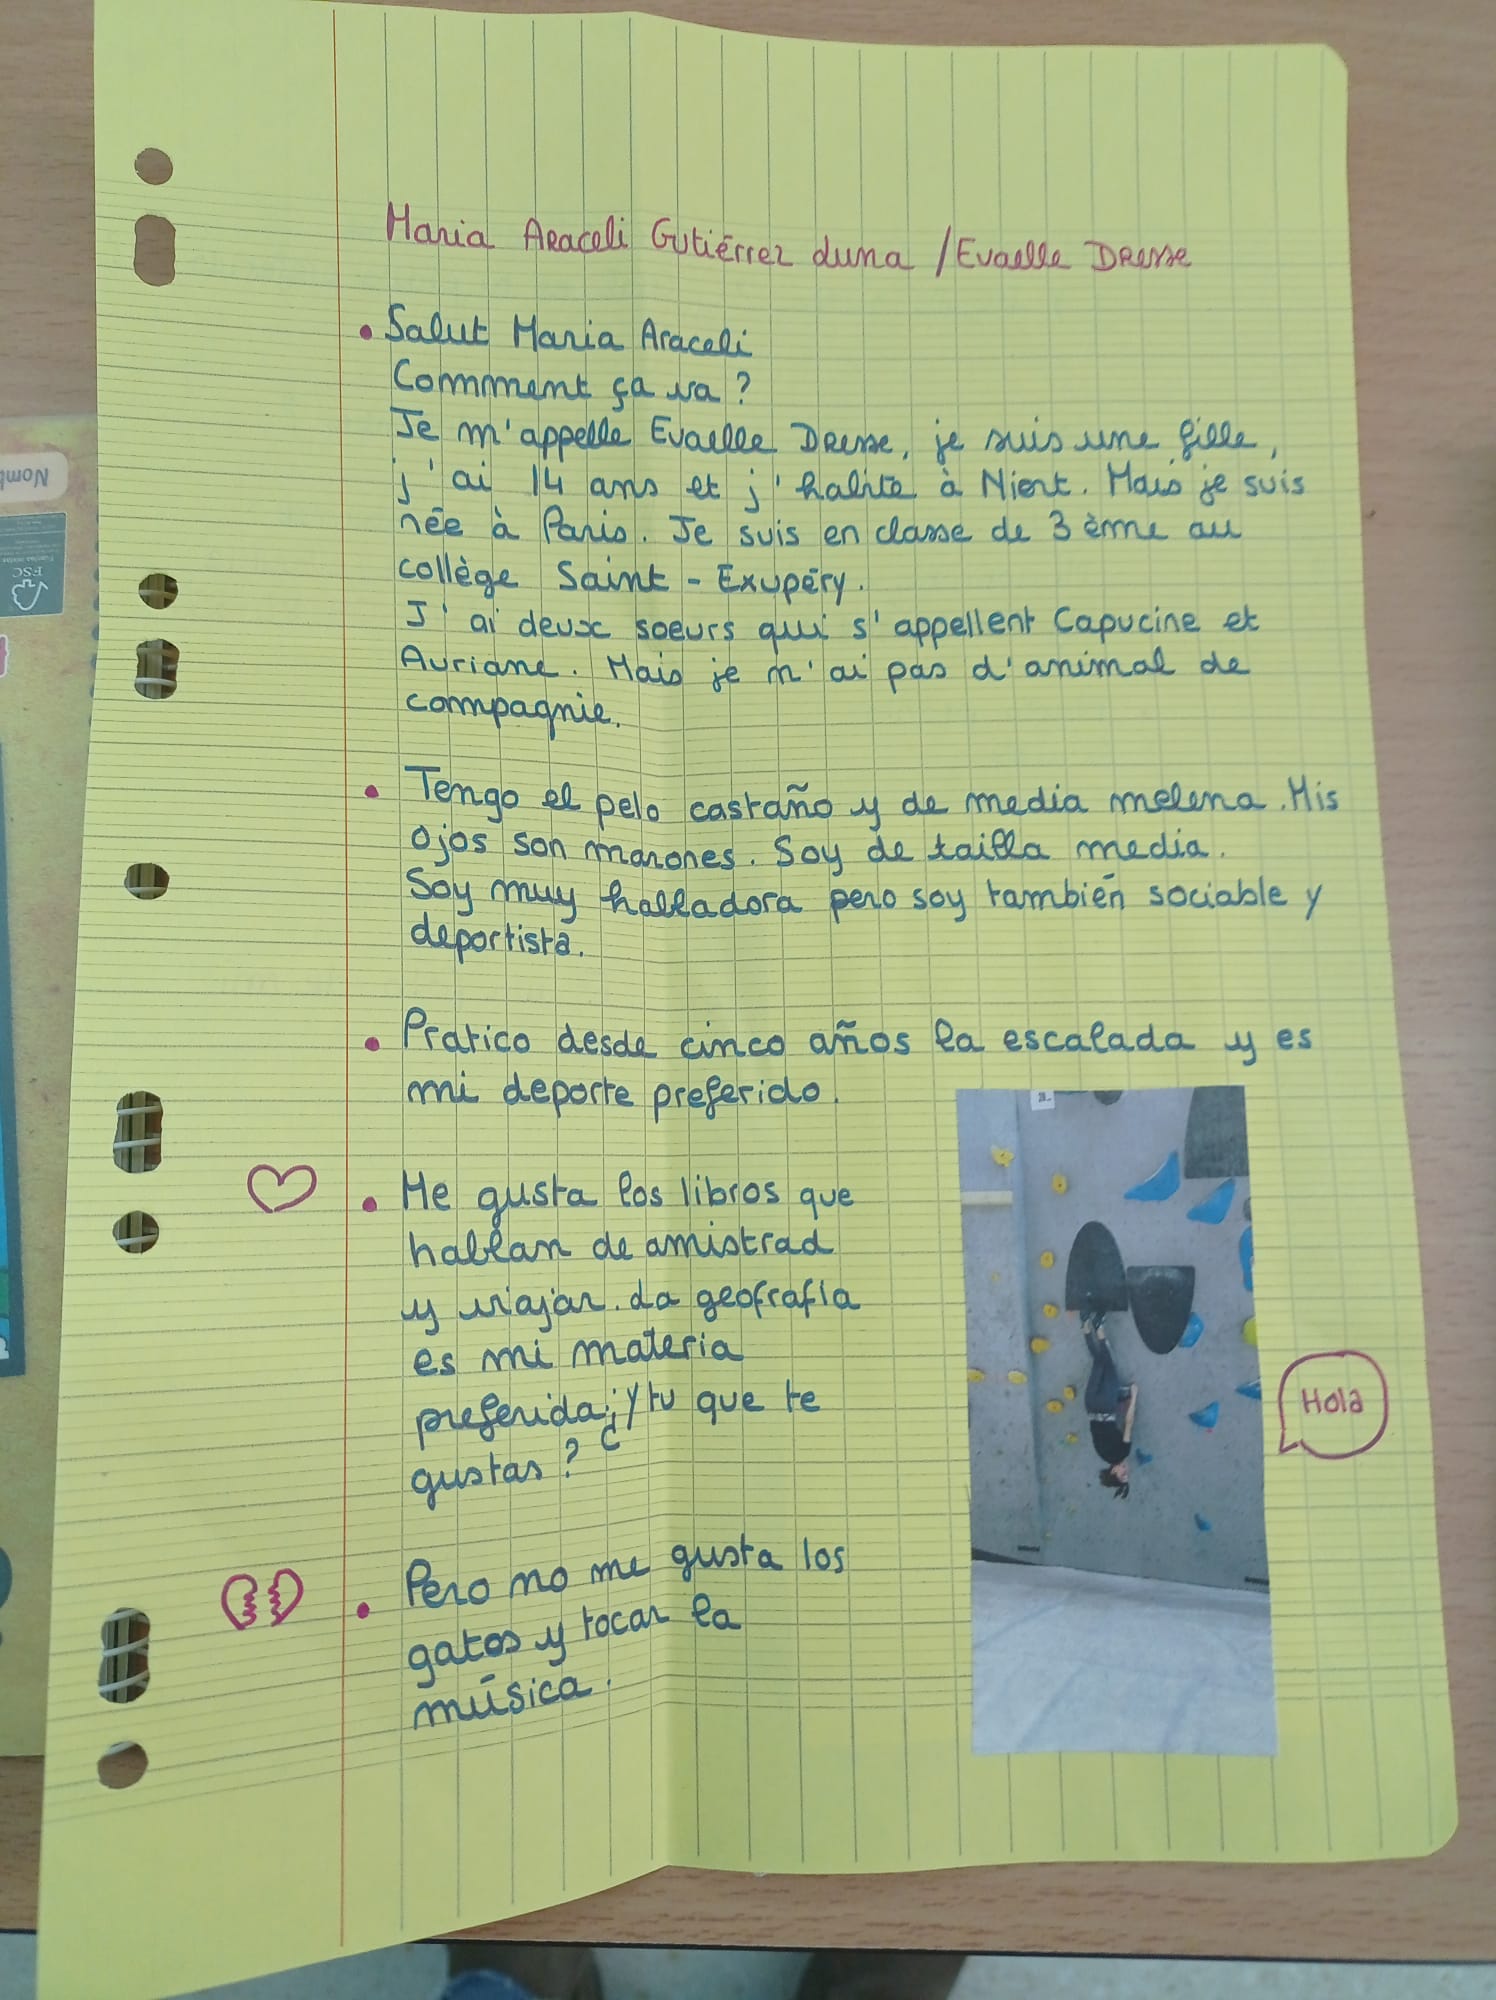 Maria Araceli Gutiérrez Luna / Evaelle Dresse
• Salut Maria Araceli
Commment ça va ?
Je m'appelle Evaelle Dresse, je suis une fille,
j'ai 14 ans et j'habite à Niort. Mais je suis
née à Paris. Je suis en classe de 3 ème au
collège Saint-Exupéry.
J'ai deux soeurs qui s'appellent Capucine et
Auriane. Mais je n'ai pas d'animal de
compagnie.
• Tengo el pelo castaño y de media melena. Mis
ojos son marones. Soy de tailla media.
Soy muy habladora pero soy también sociable y
deportista.
• Pratico desde cinco años la escalada y es
mi deporte preferido.
• Me gusta los libros que
hablan de amistrad
y viajar. La geofrafía
es mi materia
preferida; ¿Y tu que te
gustas ?
• Pero no me gusta los
gatos y tocar la
música.
Hola
Nomb
FSC